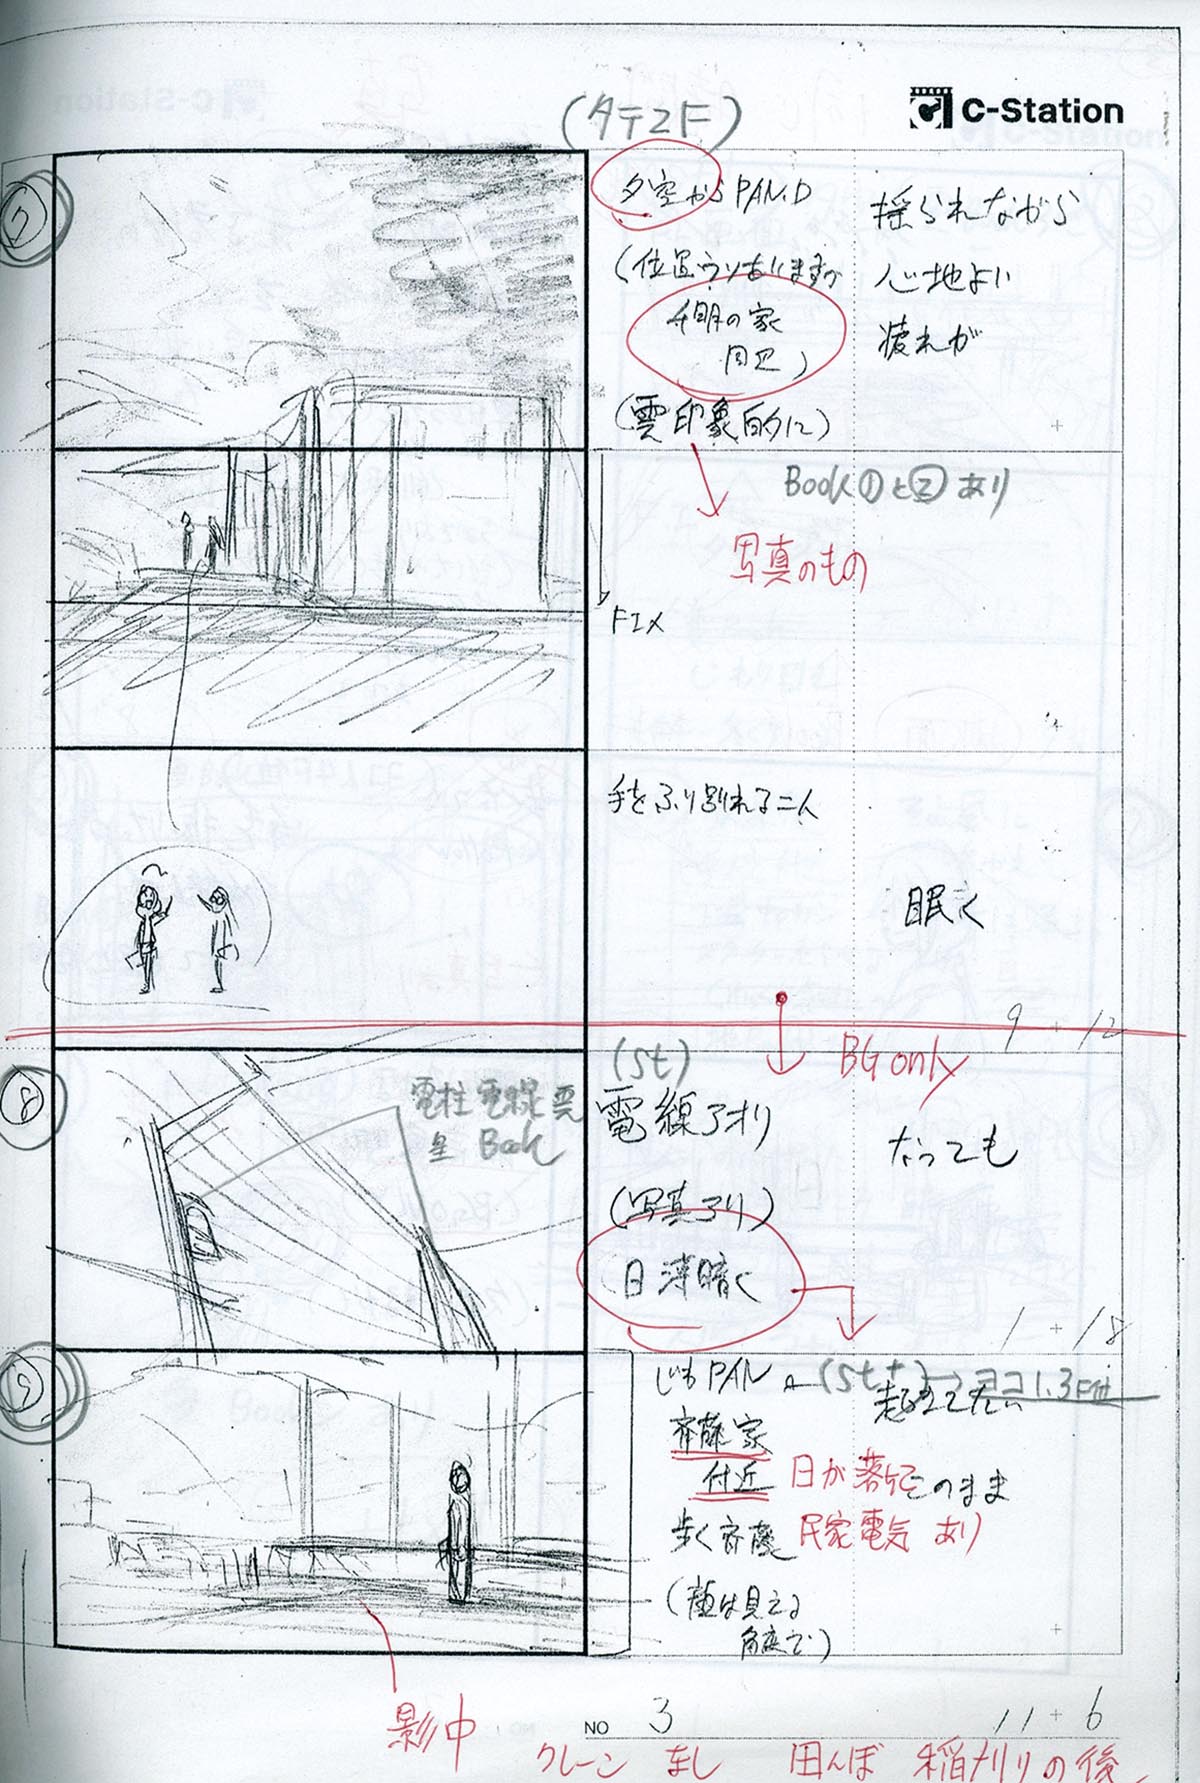 C-Station
(タテ2F)
7
夕空からPAN.D
揺られながら
(位置ウソありますが
心地よい
千明の家
疲れが
周辺)
(雲印象的に)
Book①と②あり
写真のもの
FIX
手をふり別れる二人
眠く
9 + 12
BG only
8
(St)
電柱 電線 雲
Book
電線アオリ
なっても
(写真アリ)
日薄暗く
1 + 18
9
じわPAN
(St + ヨコ1.3F
斉藤家
付近
日が落けて
このまま
歩く斉藤
民家電気 あり
(顔は見える
角度で)
影中
NO 3
11 + 6
クレーン なし 田んぼ 稲刈りの後